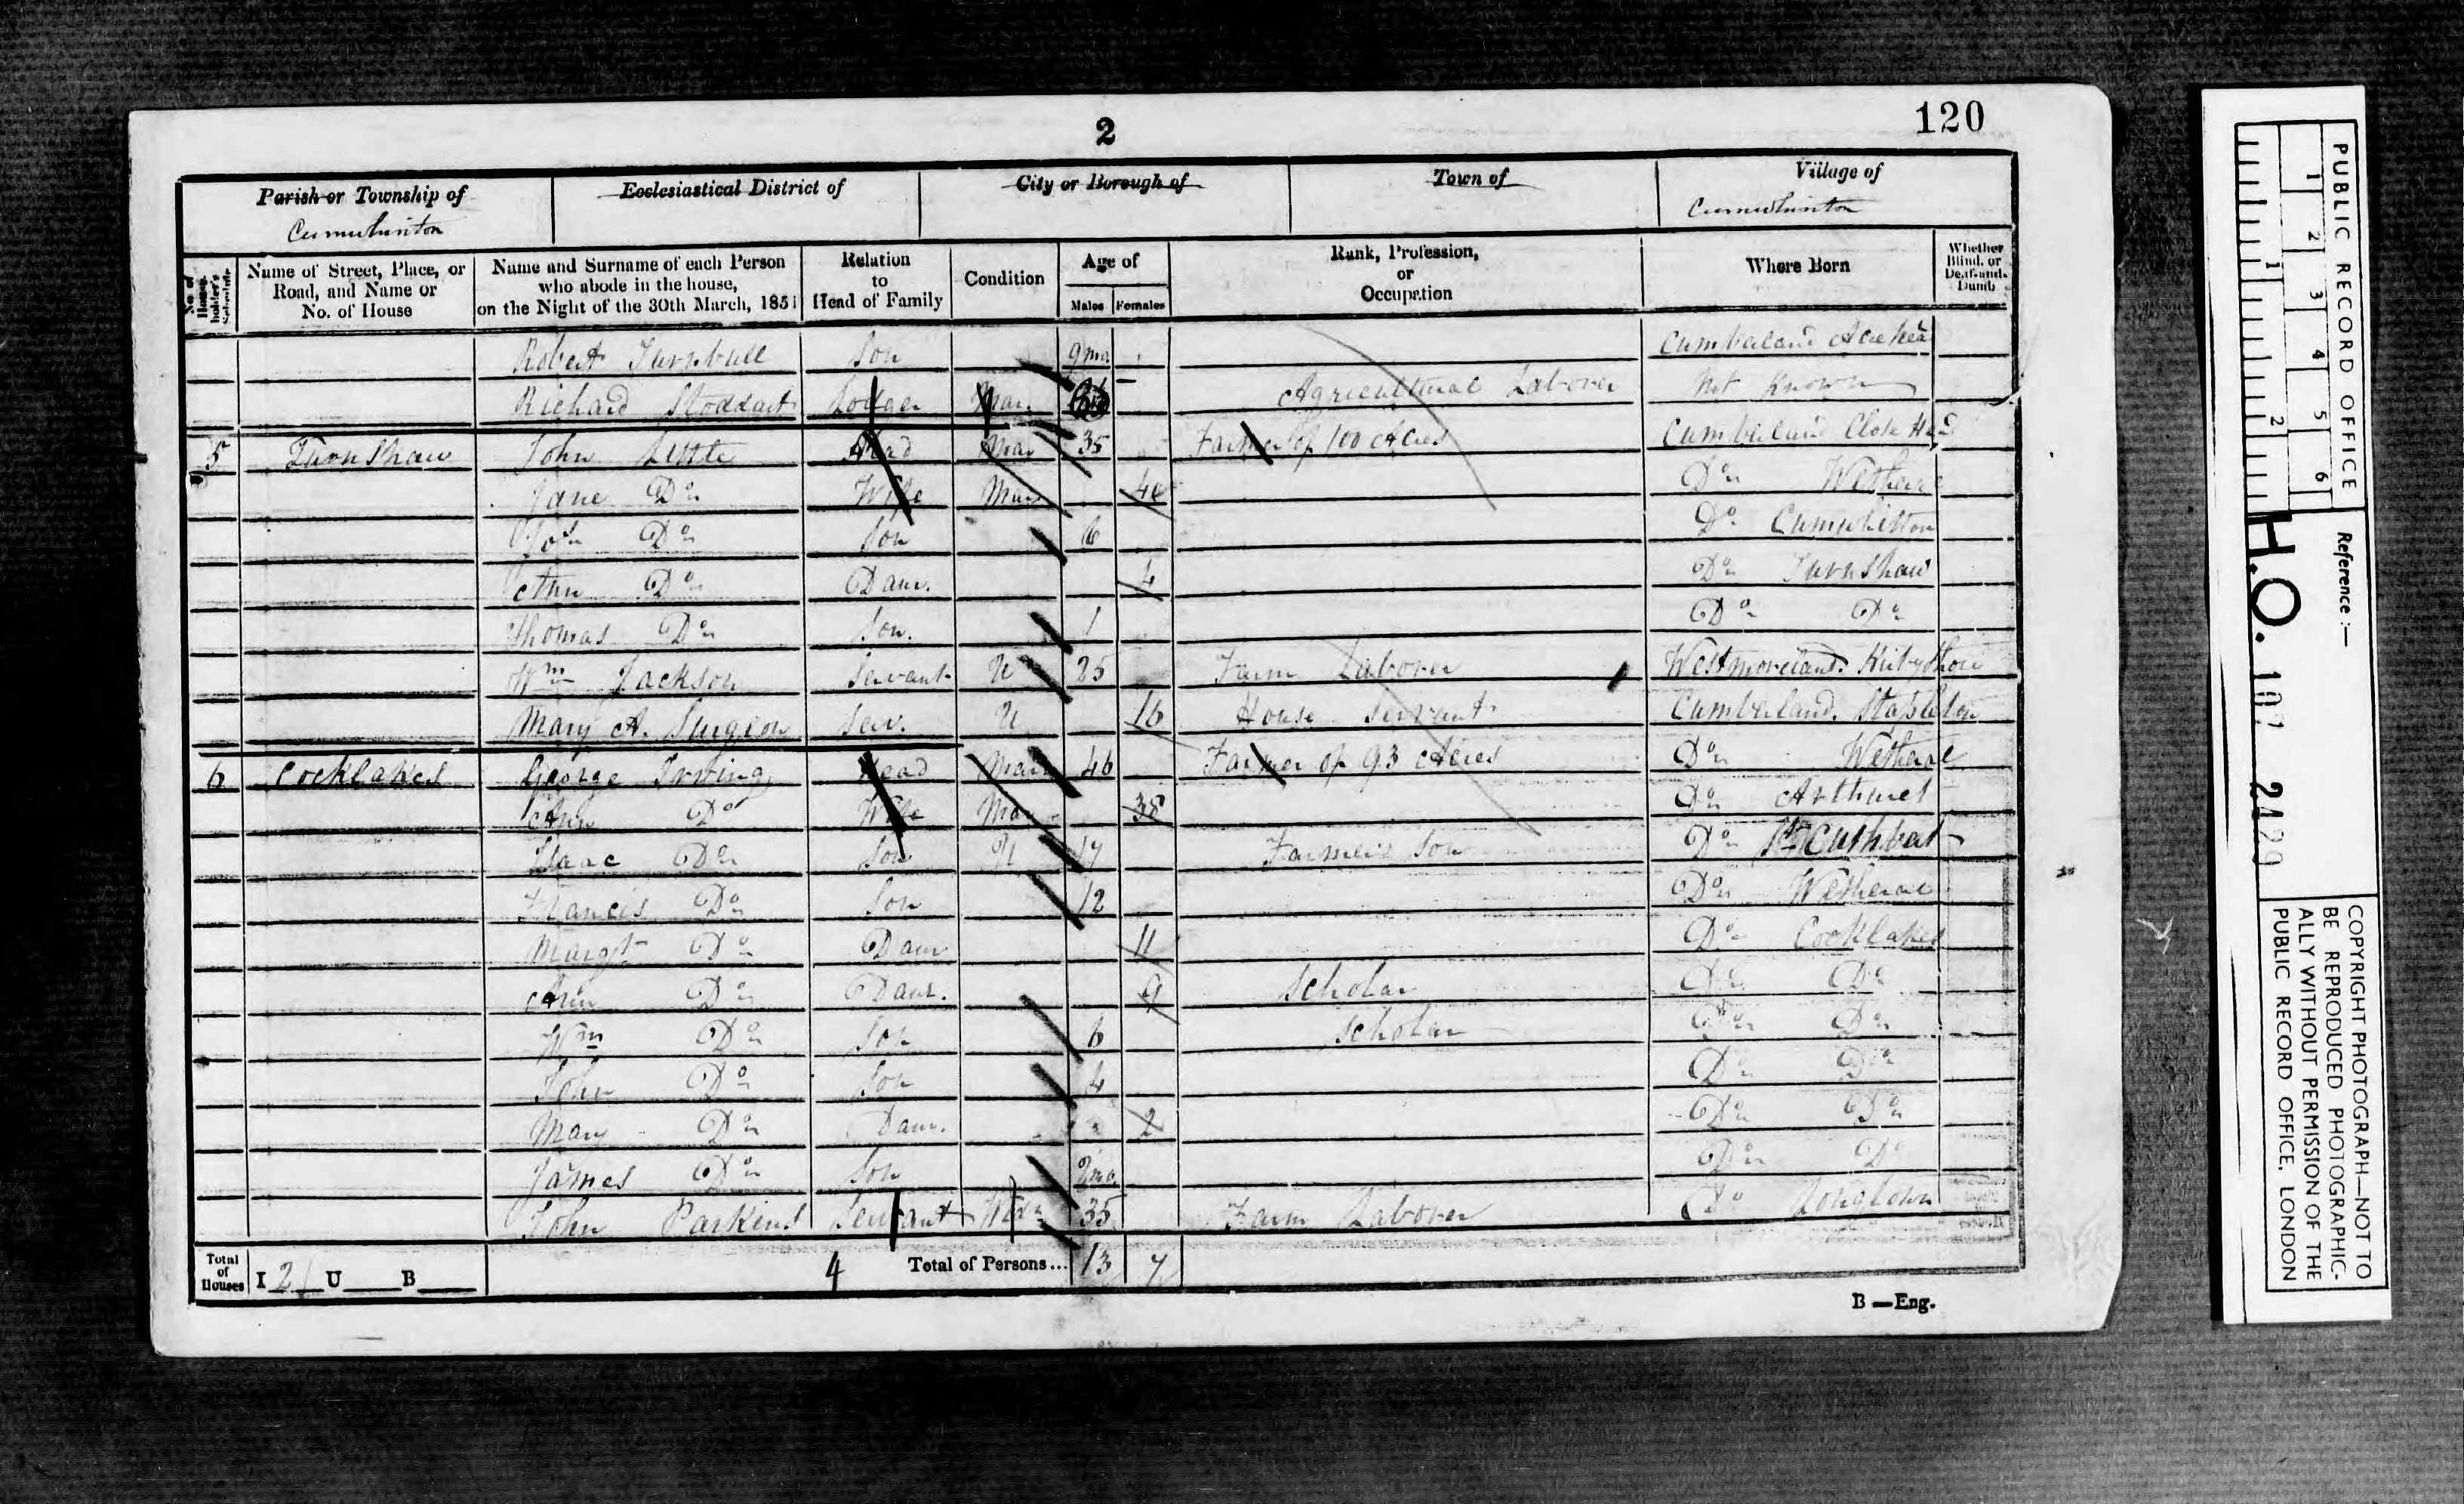 2
120
Parish or Township of
Cumwhinton
Ecclesiastical District of
City or Borough of
Town of
Village of
Cumwhinton
No. of House-holder's Schedule
Name of Street, Place, or Road, and Name or No. of House
Name and Surname of each Person who abode in the house, on the Night of the 30th March, 1851
Relation to Head of Family
Condition
Age of
Males Females
Rank, Profession, or Occupation
Where Born
Whether Blind, or Deaf-and-Dumb
Robert Turnbull Son 9mo Cumberland
Richard Stoddart Lodger Mar. Agricultural Laborer Not Known
5 Turnshaw John Little Head Mar 35 Farmer of 100 Acres Cumberland Close Hd
Jane Do Wife Mar 40 Do Wetheral
Josh Do Son 6 Do Cumwhitton
Ann Do Daur. 4 Do Turnshaw
Thomas Do Son. 1 Do Do
Wm Jackson Servant U 25 Farm Laborer Westmoreland. Kirbythore
Mary A. Surgion Serv. U 16 House Servant Cumberland. Stapleton
6 Cocklakes George Irving Head Mar 46 Farmer of 93 Acres Do Wetheral
Ann Do Wife Mar 38 Do Arthuret
Isaac Do Son U 17 Farmer's Son Do St Cuthbert
Francis Do Son 12 Do Wetheral
Margt Do Daur 11 Do Cocklakes
Ann Do Daur. 9 Scholar Do Do
Wm Do Son 6 Scholar Do Do
John Do Son 4 Do Do
Mary Do Daur. 2 Do Do
James Do Son 2mo Do Do
John Parkins Servant Widr 35 Farm Laborer Do Longtown
Total of Houses I 2 U B
4 Total of Persons... 13 7
B—Eng.
PUBLIC RECORD OFFICE
1 2 3 4 5 6
1 2
Reference:—
H.O. 107 2429
COPYRIGHT PHOTOGRAPH—NOT TO
BE REPRODUCED PHOTOGRAPHIC-
ALLY WITHOUT PERMISSION OF THE
PUBLIC RECORD OFFICE, LONDON